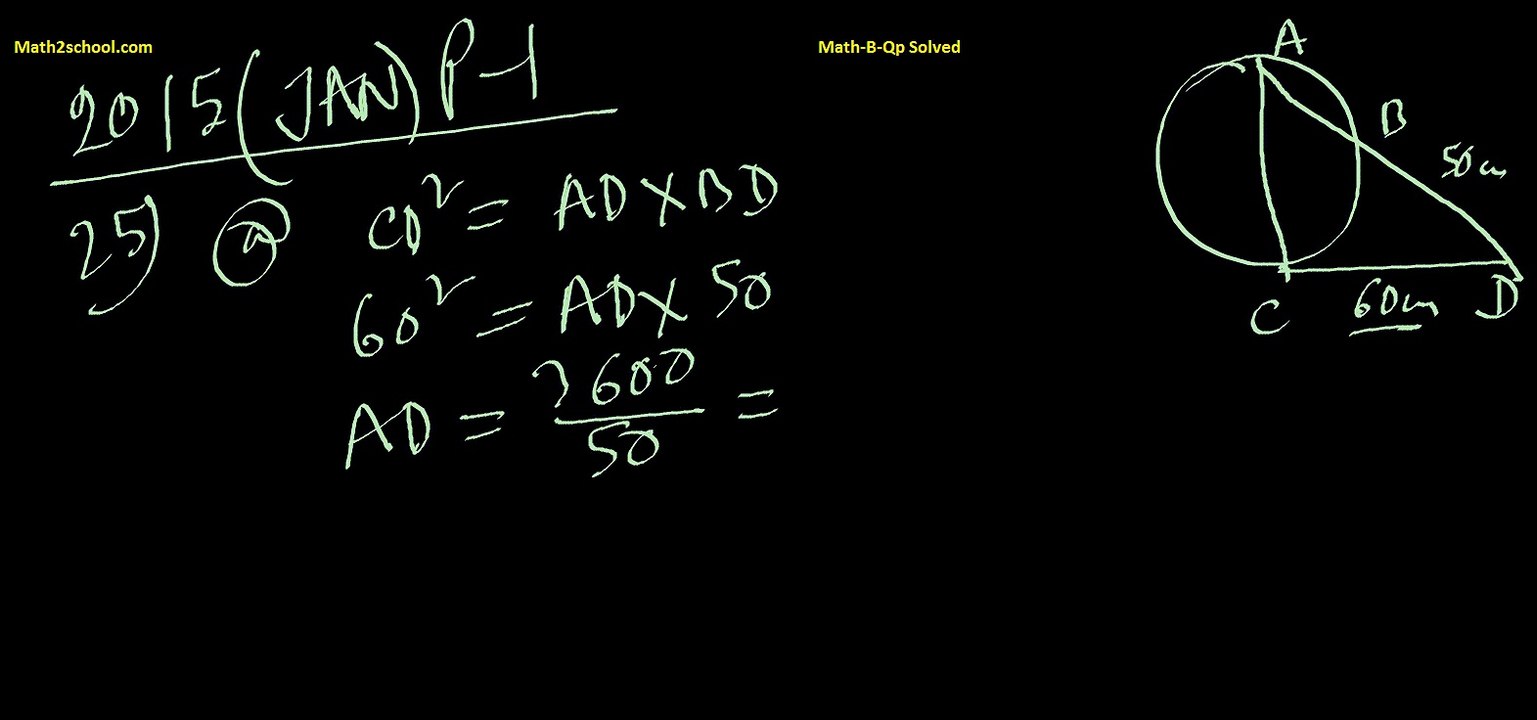 Math2school.com
Math-B-Qp Solved
2015 (JAN) P-1
25) a CD² = AD X BD
60² = AD X 50
AD = 3600/50 =
A
B
50cm
C
60cm
D